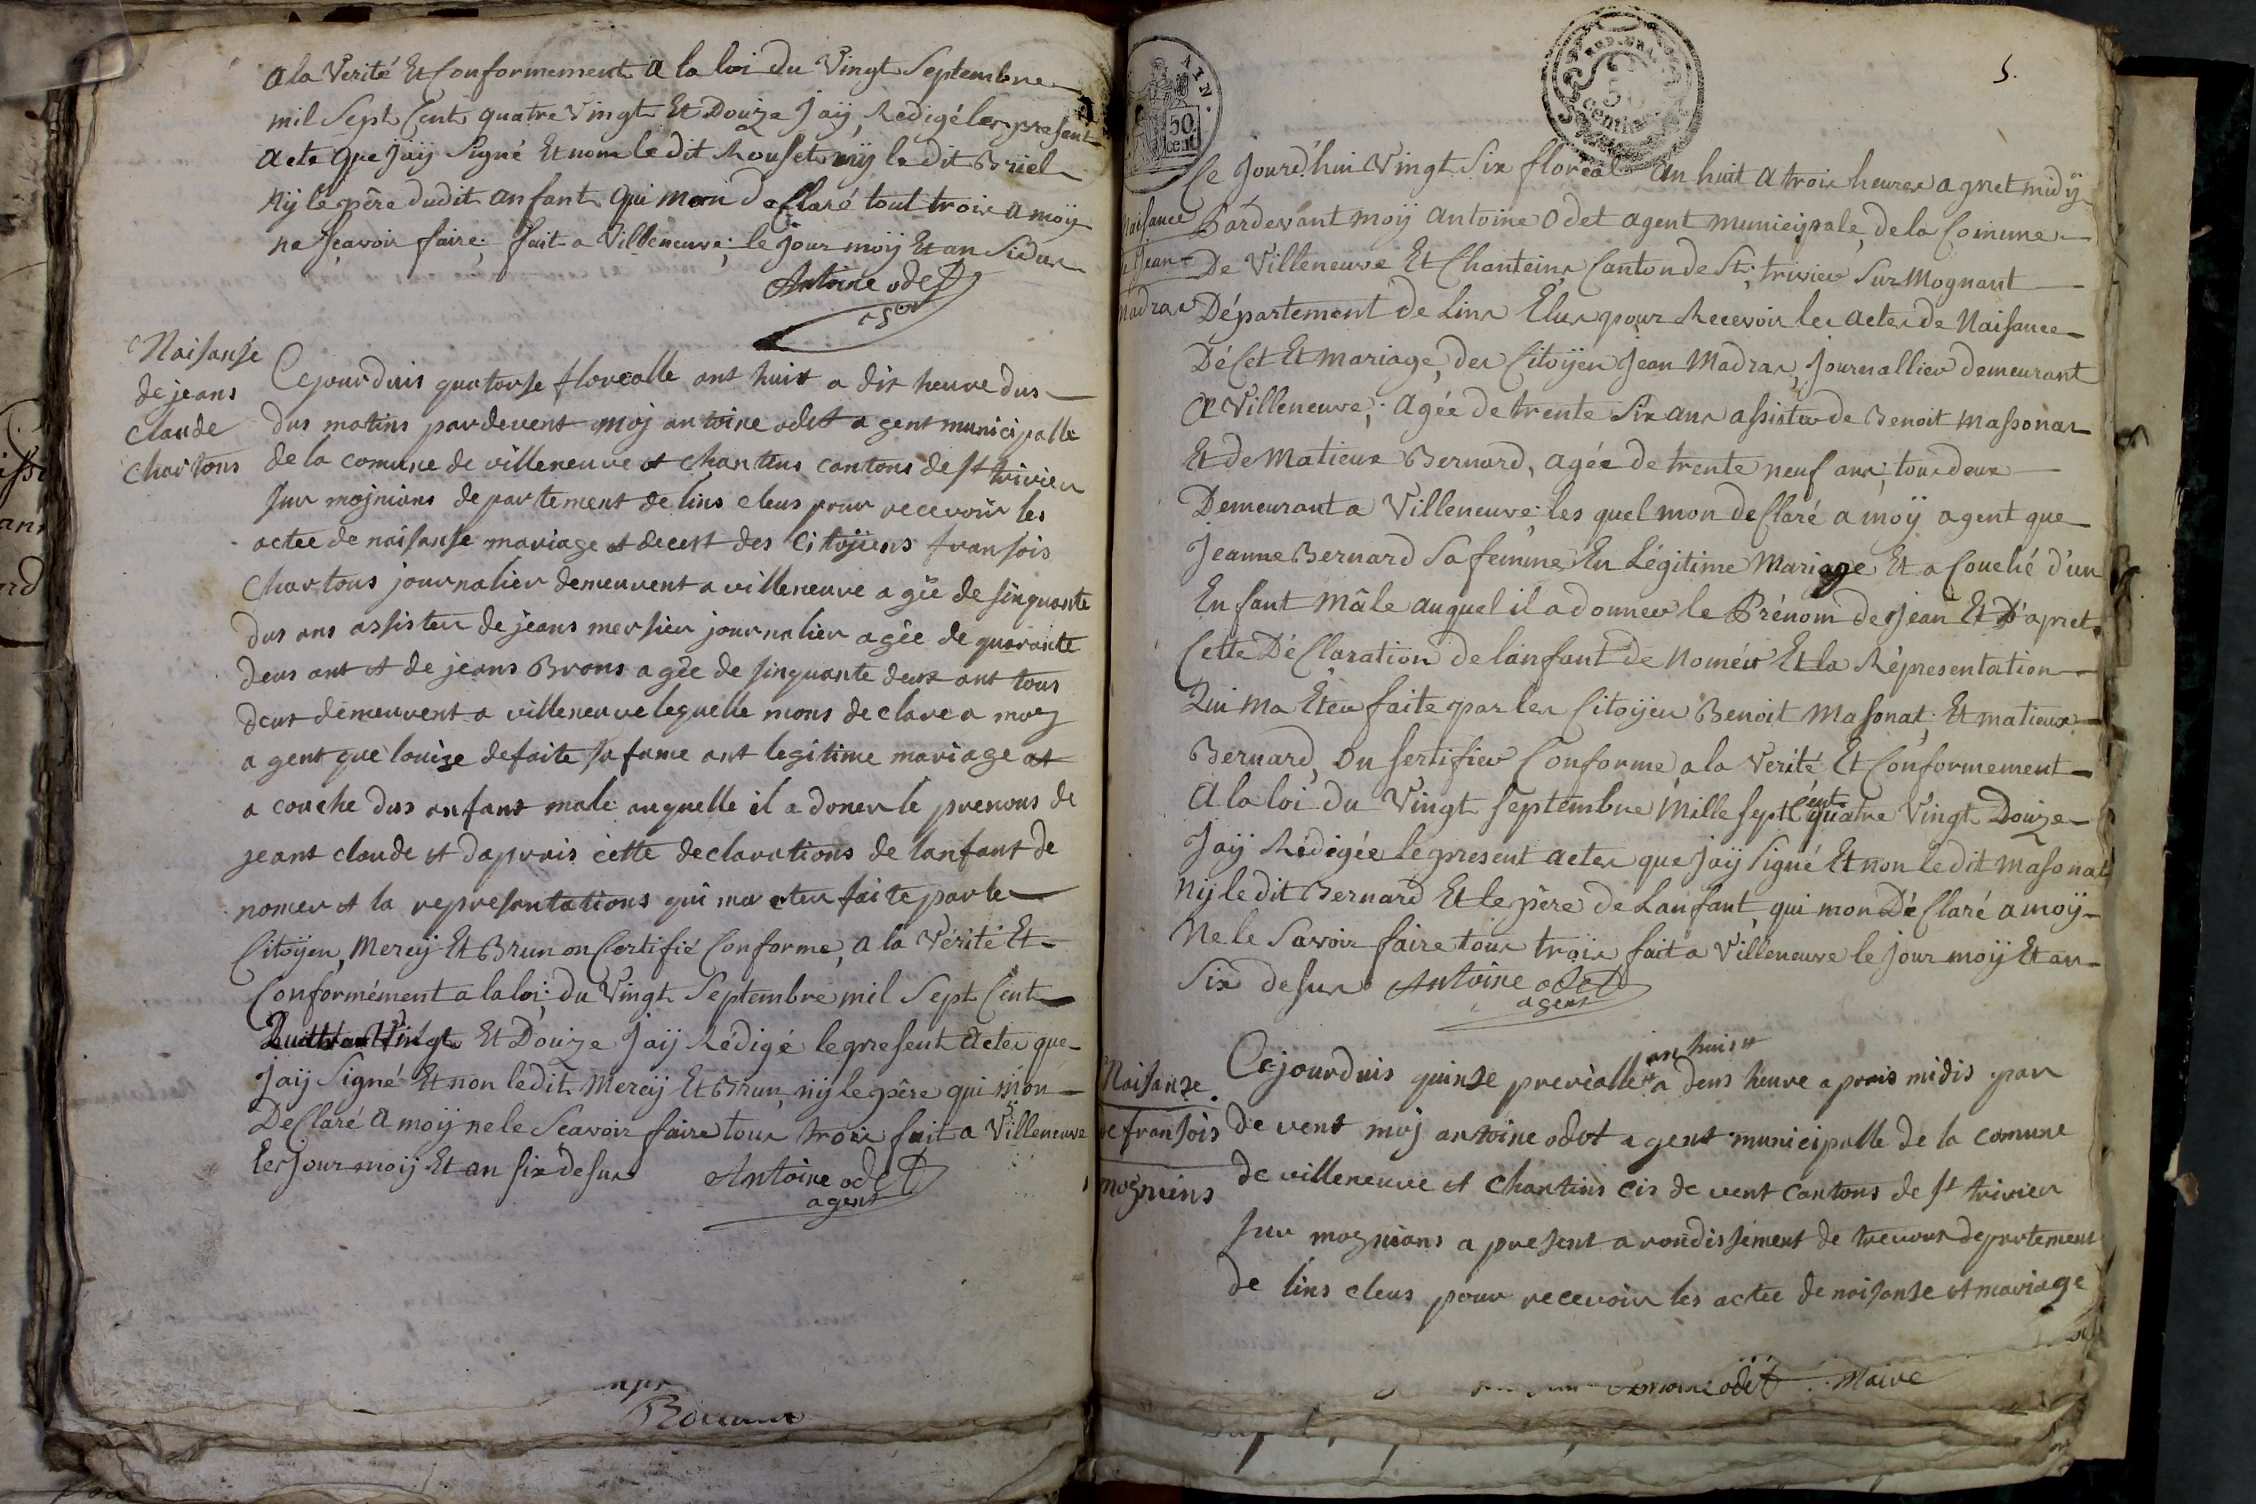 a la Verité Et Conformement a la loi du Vingt Septembre
mil Sept Cent quatre Vingt Et Douze Jaÿ Redigé les present
acte que Jaÿ Signé Et non le dit Rouset nÿ le dit Briel
Nÿ le père dudit anfant qui mon declaré tout trois a moÿ
ne Sçavoir faire; fait a Villeneuve; le jour moÿ Et an Sidus
Antoine odet
Naisanse
de jeans
claude
chartons
Cejourduis quatorse florealle ant huit a dix heure dus
dus matins pardevent moj antoine odet agent municipalle
de la comune de villeneuve et chantins cantons de st trivier
sur mojnians departement de lins eleus pour recevoir les
actee de naisanse mariage et decest des Citoÿiens fransois
chartons journalier demeurent a villeneuve agée de sinquante
dus ans assister de jeans mersier journalier agée de quarante
deus ant et de jeans Brons agée de sinquante deux ant tous
deus demeurent a villeneuve lequelle mons declare a moy
agent que louise defaite sa fame ant legitime mariage et
a couche dus anfant male auquelle il a doner le prenons de
jeant claude et daprais cette declarations de lanfant de
nomer et la representations qui ma eter faite par le
Citoÿen, Merciÿ Et Brun on Certifié Conforme, a la Vérité Et
Conformément a la loi; du Vingt Septembre mil Sept Cent
Quattre Vingt Et Douze Jaÿ Rédigé le present Actes que
Jaÿ Signé Et non le dit Merciÿ Et Brun, nÿ le père qui mon
DeClaré a moÿ ne le Sçavoir faire tous trois fait a Villeneuve
les Jour moÿ Et an six desus
Antoine odet
agent
5.
REP. FRA.
50
centimes
50
cent
Naisance
de Jean
Madras
Ce Jourd'hui Vingt Six floréal an huit a trois heures agnet midÿ
Pardevant moÿ antoine Odet agent municipale, de la Comune
De Villeneuve Et Chanteins Canton de St; trivier Sur Mognant
Département de Lins Elus pour Recevoir les actes de Naisance
DéCet Et mariage, des Citoÿen Jean Madras, Journallier demeurant
a Villeneuve; agée de trente Six ans assister de Benoit Massonas
Et de Matieux Bernard, agée de trente neuf ans; tous deux
Demeurant a Villeneuve; les quel mon deClaré a moÿ agent que
Jeanne Bernard Sa femme En Légitime Mariage Et a Couché d'un
Enfant Mâle auquel il a donner le Prénom de Jean Et D'apret
Cette DéClaration de lanfant de Noméer Et la Répresentation
Qui ma Eter faite par les Citoÿen Benoit Masonat; Et matieux
Bernard, on sertifier Conforme a la Verité Et Conformement
A la loi du Vingt septembre Mille sept Cent quatre Vingt Douze
Jaÿ Rédigée le present actes que Jaÿ Signé Et non le dit Masonat
Nÿ le dit Bernard Et le père de Lanfant, qui mon DéClaré a moÿ
Ne le Savoir faire tous troix fait a Villeneuve le jour moÿ Et an
Six desus Antoine odet
agent
Naisanse
de fransois
mognins
Cejourduis quinse prerialle an huit a deus heure aprais midis par
de vent moj antoine odet agent municipalle de la comune
de villeneuve et chantins cis de vent cantons de st trivier
sur mognians a present arondissement de trevous departement
de lins eleus pour recevoir les actee de naisanse et mariage
antoine odet Maire